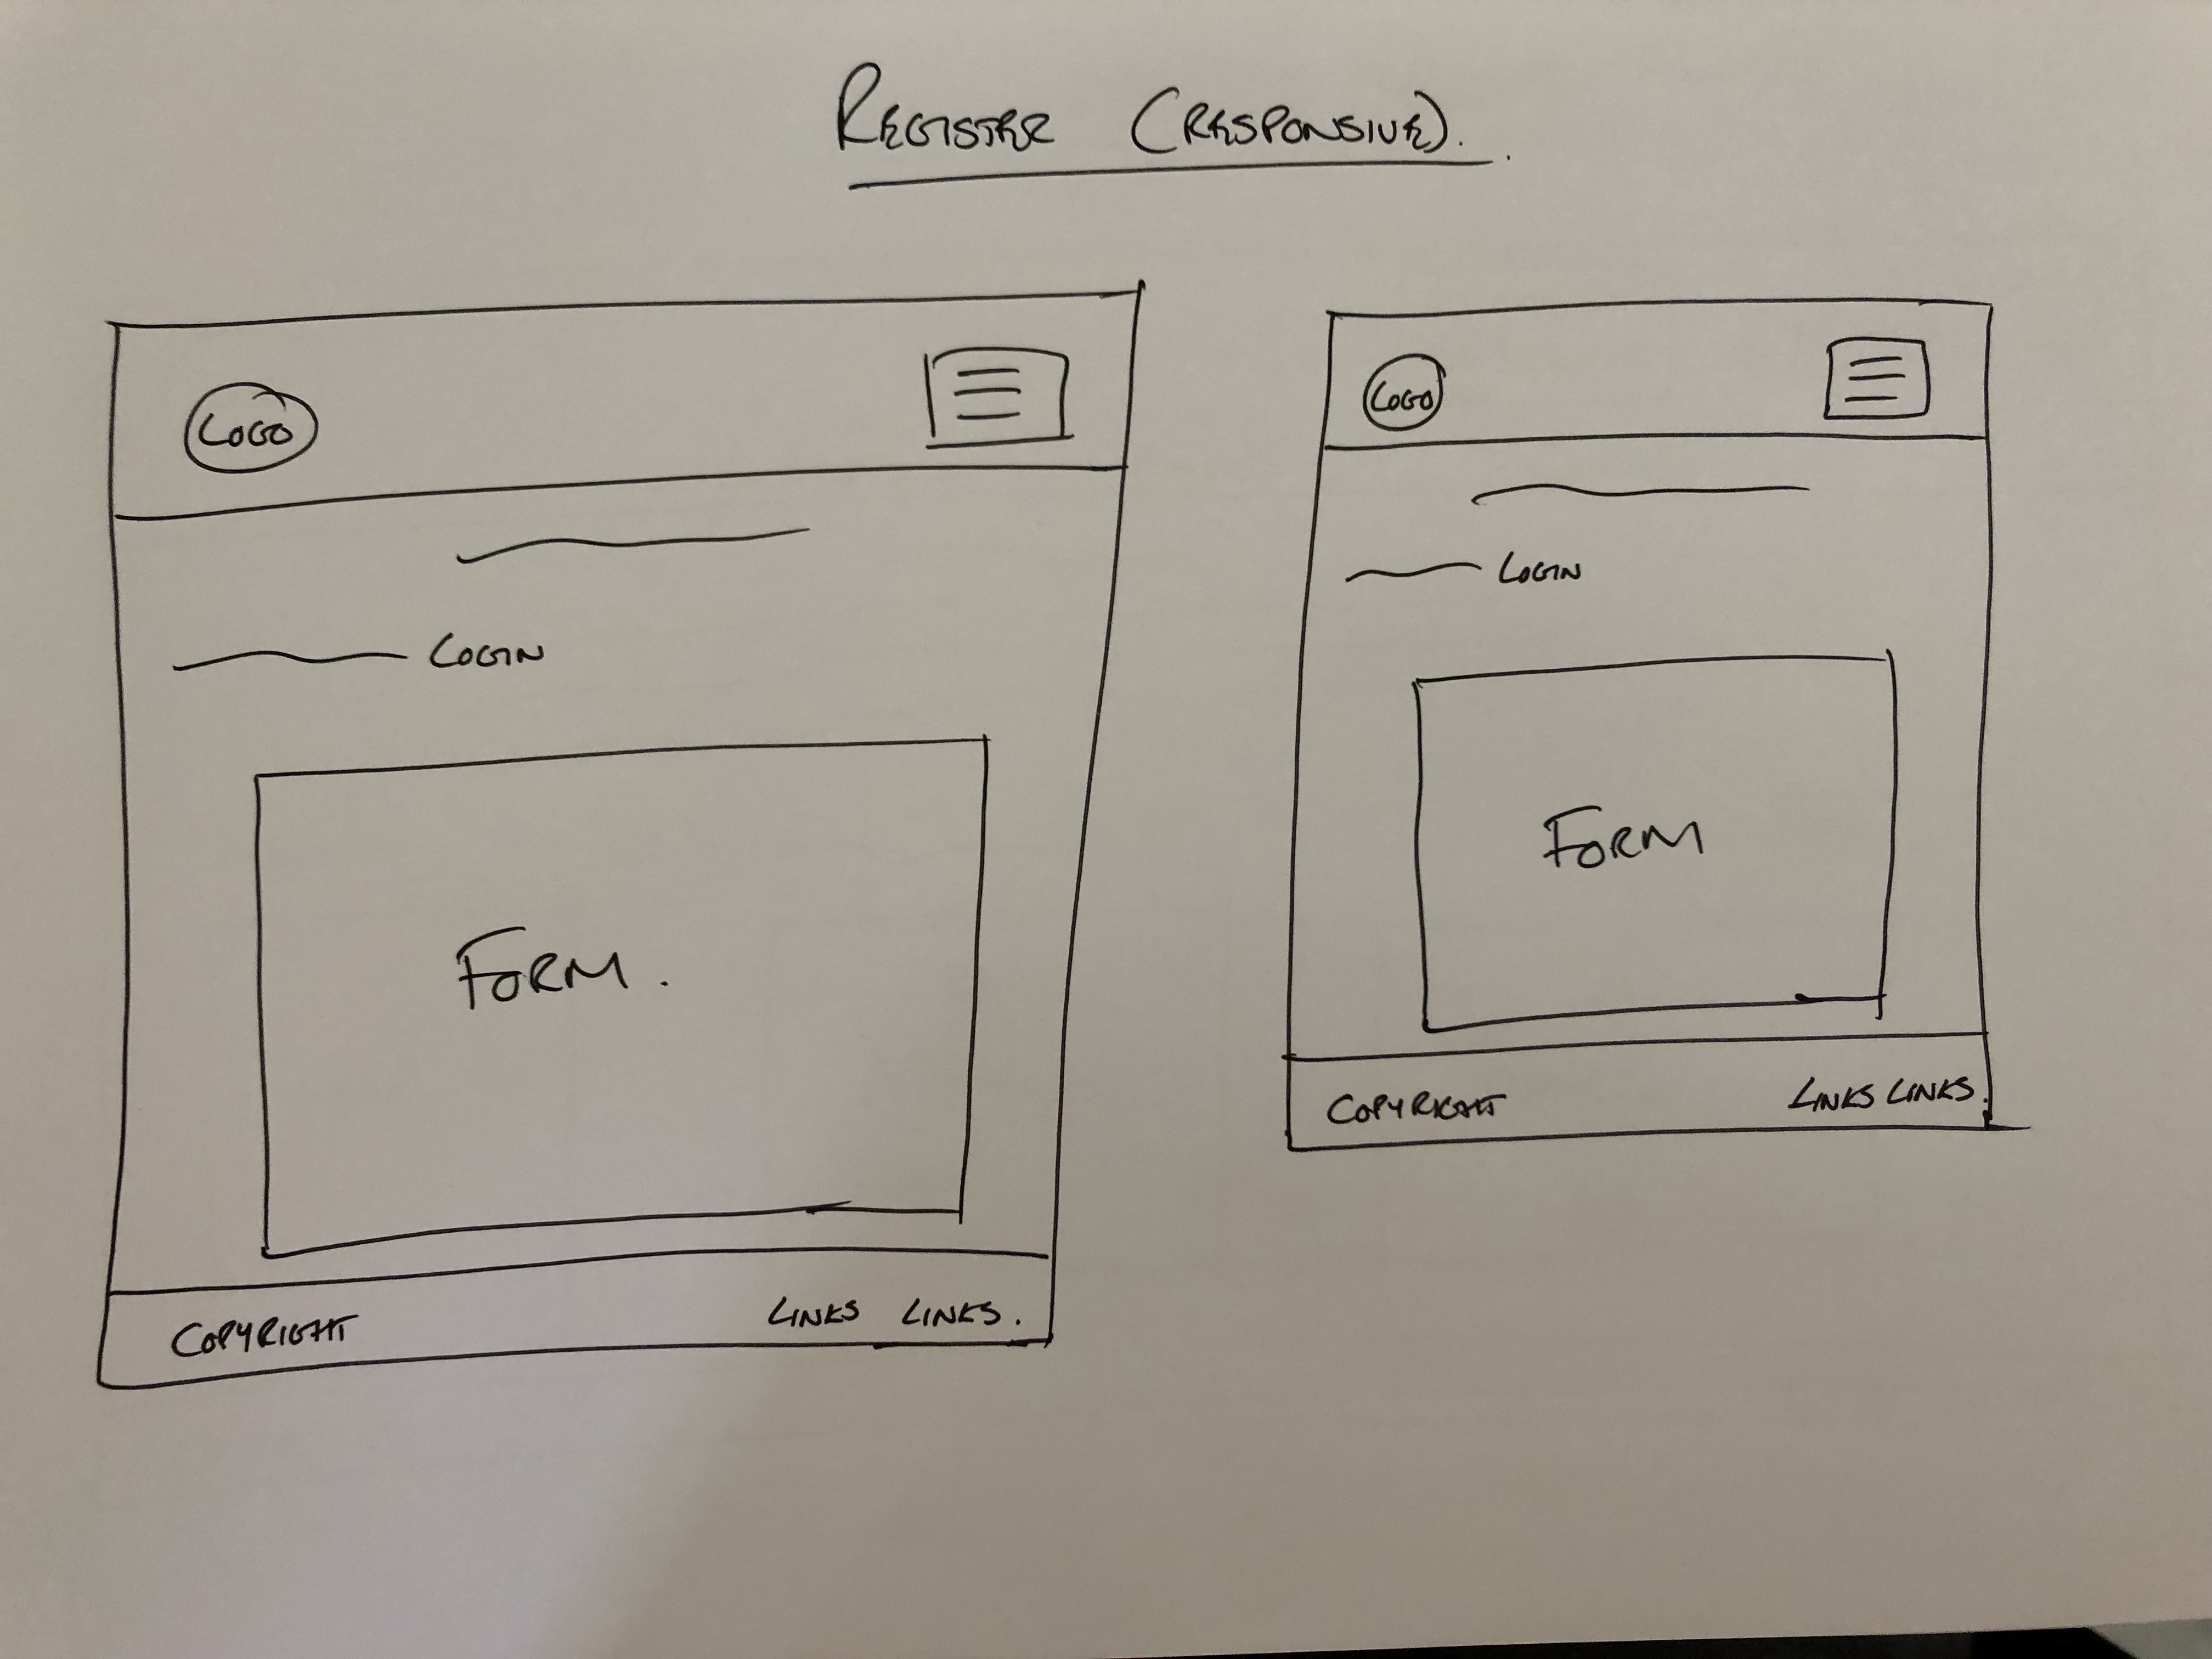 REGISTER (RESPONSIVE).
LOGO
LOGIN
FORM.
COPYRIGHT LINKS LINKS.
LOGO
LOGIN
FORM
COPYRIGHT LINKS LINKS.